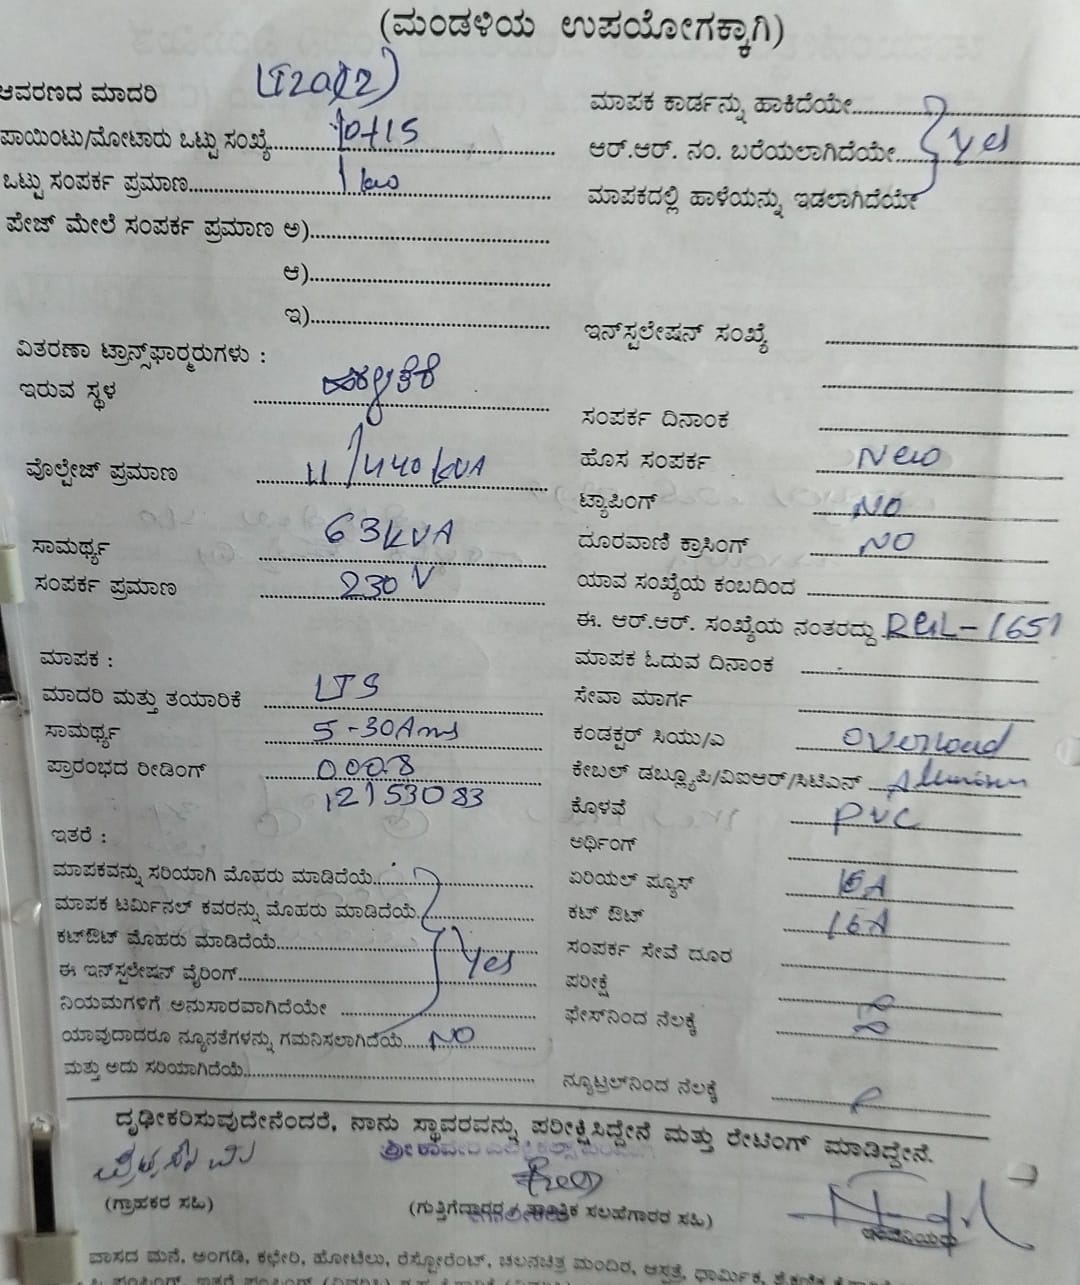 (ಮಂಡಳಿಯ ಉಪಯೋಗಕ್ಕಾಗಿ)
ಆವರಣದ ಮಾದರಿ LT2a(2)
ಪಾಯಿಂಟು/ಮೋಟಾರು ಒಟ್ಟು ಸಂಖ್ಯೆ 10+15
ಒಟ್ಟು ಸಂಪರ್ಕ ಪ್ರಮಾಣ 1 kw
ಪೇಜ್ ಮೇಲೆ ಸಂಪರ್ಕ ಪ್ರಮಾಣ ಅ)
ಆ)
ಇ)
ವಿತರಣಾ ಟ್ರಾನ್ಸ್‌ಫಾರ್ಮರುಗಳು :
ಇರುವ ಸ್ಥಳ
ವೊಲ್ಟೇಜ್ ಪ್ರಮಾಣ 11/440 kVA
ಸಾಮರ್ಥ್ಯ 63 kVA
ಸಂಪರ್ಕ ಪ್ರಮಾಣ 230 V
ಮಾಪಕ :
ಮಾದರಿ ಮತ್ತು ತಯಾರಿಕೆ LTS
ಸಾಮರ್ಥ್ಯ 5-30Ams
ಪ್ರಾರಂಭದ ರೀಡಿಂಗ್ 0008
12153083
ಇತರೆ :
ಮಾಪಕವನ್ನು ಸರಿಯಾಗಿ ಮೊಹರು ಮಾಡಿದೆಯೆ
ಮಾಪಕ ಟರ್ಮಿನಲ್ ಕವರನ್ನು ಮೊಹರು ಮಾಡಿದೆಯೆ
ಕಟ್‌ಔಟ್ ಮೊಹರು ಮಾಡಿದೆಯೆ
ಈ ಇನ್‌ಸ್ಟಲೇಷನ್ ವೈರಿಂಗ್ Yes
ನಿಯಮಗಳಿಗೆ ಅನುಸಾರವಾಗಿದೆಯೇ
ಯಾವುದಾದರೂ ನ್ಯೂನತೆಗಳನ್ನು ಗಮನಿಸಲಾಗಿದೆಯೆ NO
ಮತ್ತು ಅದು ಸರಿಯಾಗಿದೆಯೆ
ಮಾಪಕ ಕಾರ್ಡನ್ನು ಹಾಕಿದೆಯೇ
ಆರ್.ಆರ್. ನಂ. ಬರೆಯಲಾಗಿದೆಯೇ Yes
ಮಾಪಕದಲ್ಲಿ ಹಾಳೆಯನ್ನು ಇಡಲಾಗಿದೆಯೇ
ಇನ್‌ಸ್ಟಲೇಷನ್ ಸಂಖ್ಯೆ
ಸಂಪರ್ಕ ದಿನಾಂಕ
ಹೊಸ ಸಂಪರ್ಕ New
ಟ್ಯಾಪಿಂಗ್ NO
ದೂರವಾಣಿ ಕ್ರಾಸಿಂಗ್ NO
ಯಾವ ಸಂಖ್ಯೆಯ ಕಂಬದಿಂದ
ಈ. ಆರ್.ಆರ್. ಸಂಖ್ಯೆಯ ನಂತರದ್ದು RGL-1651
ಮಾಪಕ ಓದುವ ದಿನಾಂಕ
ಸೇವಾ ಮಾರ್ಗ
ಕಂಡಕ್ಟರ್ ಸಿಯು/ಎ Overload
ಕೇಬಲ್ ಡಬ್ಲ್ಯೂಪಿ/ವಿಐಆರ್/ಸಿಟಿಎನ್
ಕೊಳವೆ PVC
ಅರ್ಥಿಂಗ್
ಏರಿಯಲ್ ಫ್ಯೂಸ್ 16A
ಕಟ್ ಔಟ್ 16A
ಸಂಪರ್ಕ ಸೇವೆ ದೂರ
ಪರೀಕ್ಷೆ
ಫೇಸ್‌ನಿಂದ ನೆಲಕ್ಕೆ
ನ್ಯೂಟ್ರಲ್‌ನಿಂದ ನೆಲಕ್ಕೆ
ದೃಢೀಕರಿಸುವುದೇನೆಂದರೆ, ನಾನು ಸ್ಥಾವರವನ್ನು ಪರೀಕ್ಷಿಸಿದ್ದೇನೆ ಮತ್ತು ರೇಟಿಂಗ್ ಮಾಡಿದ್ದೇನೆ.
(ಗ್ರಾಹಕರ ಸಹಿ)
(ಗುತ್ತಿಗೆದಾರರ / ತಾಂತ್ರಿಕ ಸಲಹೆಗಾರರ ಸಹಿ)
ವಾಸದ ಮನೆ, ಅಂಗಡಿ, ಕಛೇರಿ, ಹೋಟೆಲು, ರೆಸ್ಟೋರೆಂಟ್, ಚಲನಚಿತ್ರ ಮಂದಿರ, ಆಸ್ಪತ್ರೆ, ಧಾರ್ಮಿಕ,